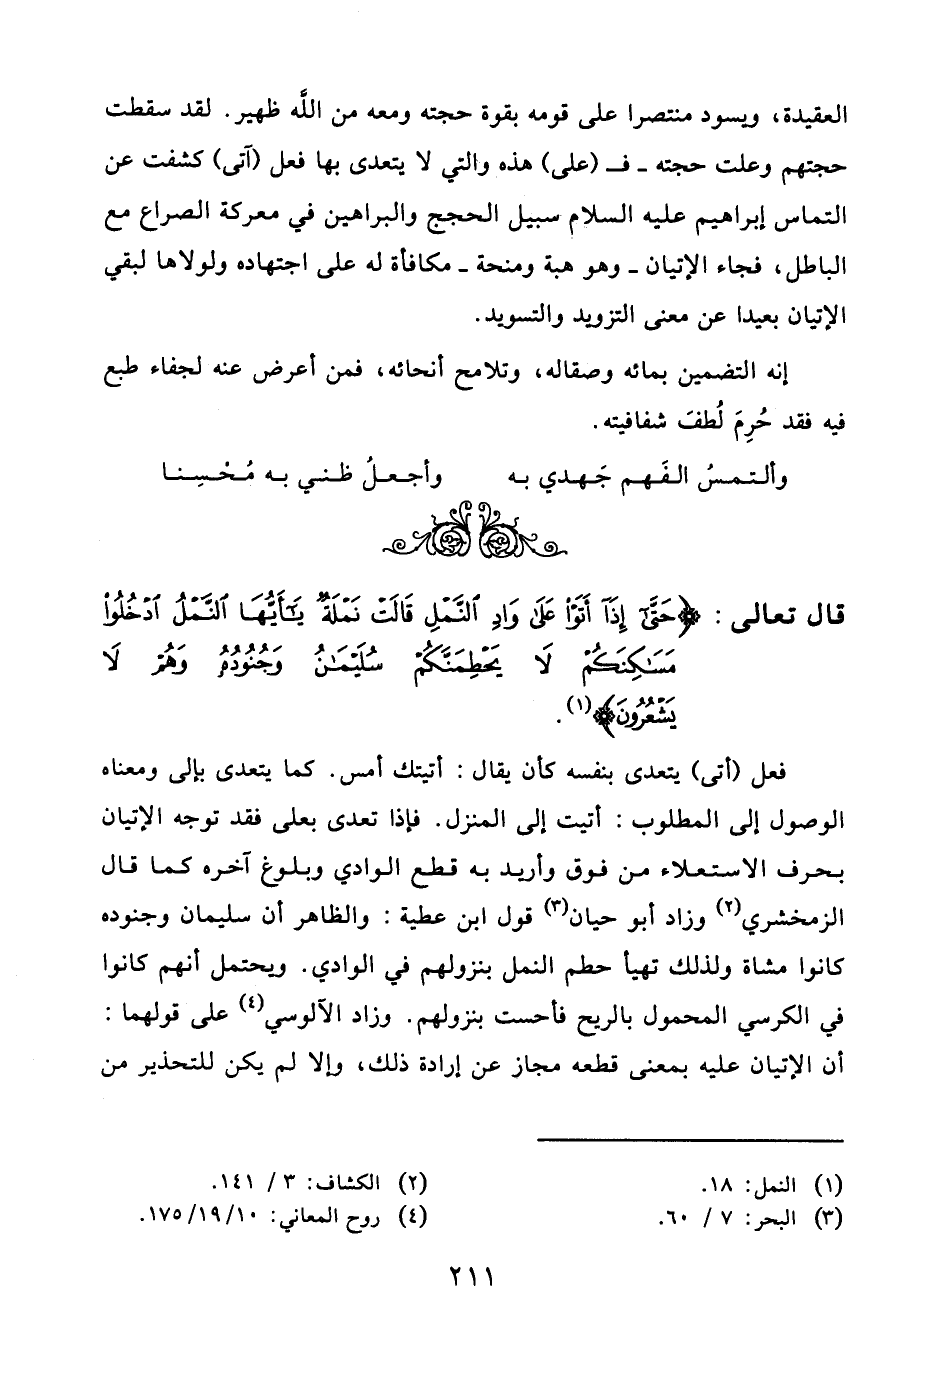 العقيدة، ويسود منتصرا على قومه بقوة حجته ومعه من اللَّه ظهير. لقد سقطت
حجتهم وعلت حجته ـ فـ (على) هذه والتي لا يتعدى بها فعل (آتى) كشفت عن
التماس إبراهيم عليه السلام سبيل الحجج والبراهين في معركة الصراع مع
الباطل، فجاء الإتيان ـ وهو هبة ومنحة ـ مكافأة له على اجتهاده ولولاها لبقي
الإتيان بعيدا عن معنى التزويد والتسويد.
إنه التضمين بمائه وصقاله، وتلامح أنحائه، فمن أعرض عنه لجفاء طبع
فيه فقد حُرِمَ لُطفَ شفافيته.
وألتمسُ الفَهم جَهدي به وأجعلُ ظني به مُحْسِنا
قال تعالى : ﴿حَتَّىٰٓ إِذَآ أَتَوْا۟ عَلَىٰ وَادِ ٱلنَّمْلِ قَالَتْ نَمْلَةٌ يَـٰٓأَيُّهَا ٱلنَّمْلُ ٱدْخُلُوا۟
مَسَـٰكِنَكُمْ لَا يَحْطِمَنَّكُمْ سُلَيْمَـٰنُ وَجُنُودُهُۥ وَهُمْ لَا
يَشْعُرُونَ﴾(١).
فعل (أتى) يتعدى بنفسه كأن يقال : أتيتك أمس. كما يتعدى بإلى ومعناه
الوصول إلى المطلوب : أتيت إلى المنزل. فإذا تعدى بعلى فقد توجه الإتيان
بحرف الاستعلاء من فوق وأريد به قطع الوادي وبلوغ آخره كما قال
الزمخشري(٢) وزاد أبو حيان(٣) قول ابن عطية : والظاهر أن سليمان وجنوده
كانوا مشاة ولذلك تهيأ حطم النمل بنزولهم في الوادي. ويحتمل أنهم كانوا
في الكرسي المحمول بالريح فأحست بنزولهم. وزاد الآلوسي(٤) على قولهما :
أن الإتيان عليه بمعنى قطعه مجاز عن إرادة ذلك، وإلا لم يكن للتحذير من
(١) النمل: ١٨. (٢) الكشاف: ٣ / ١٤١.
(٣) البحر: ٧ / ٦٠. (٤) روح المعاني: ١٧٥/١٩/١٠.
٢١١